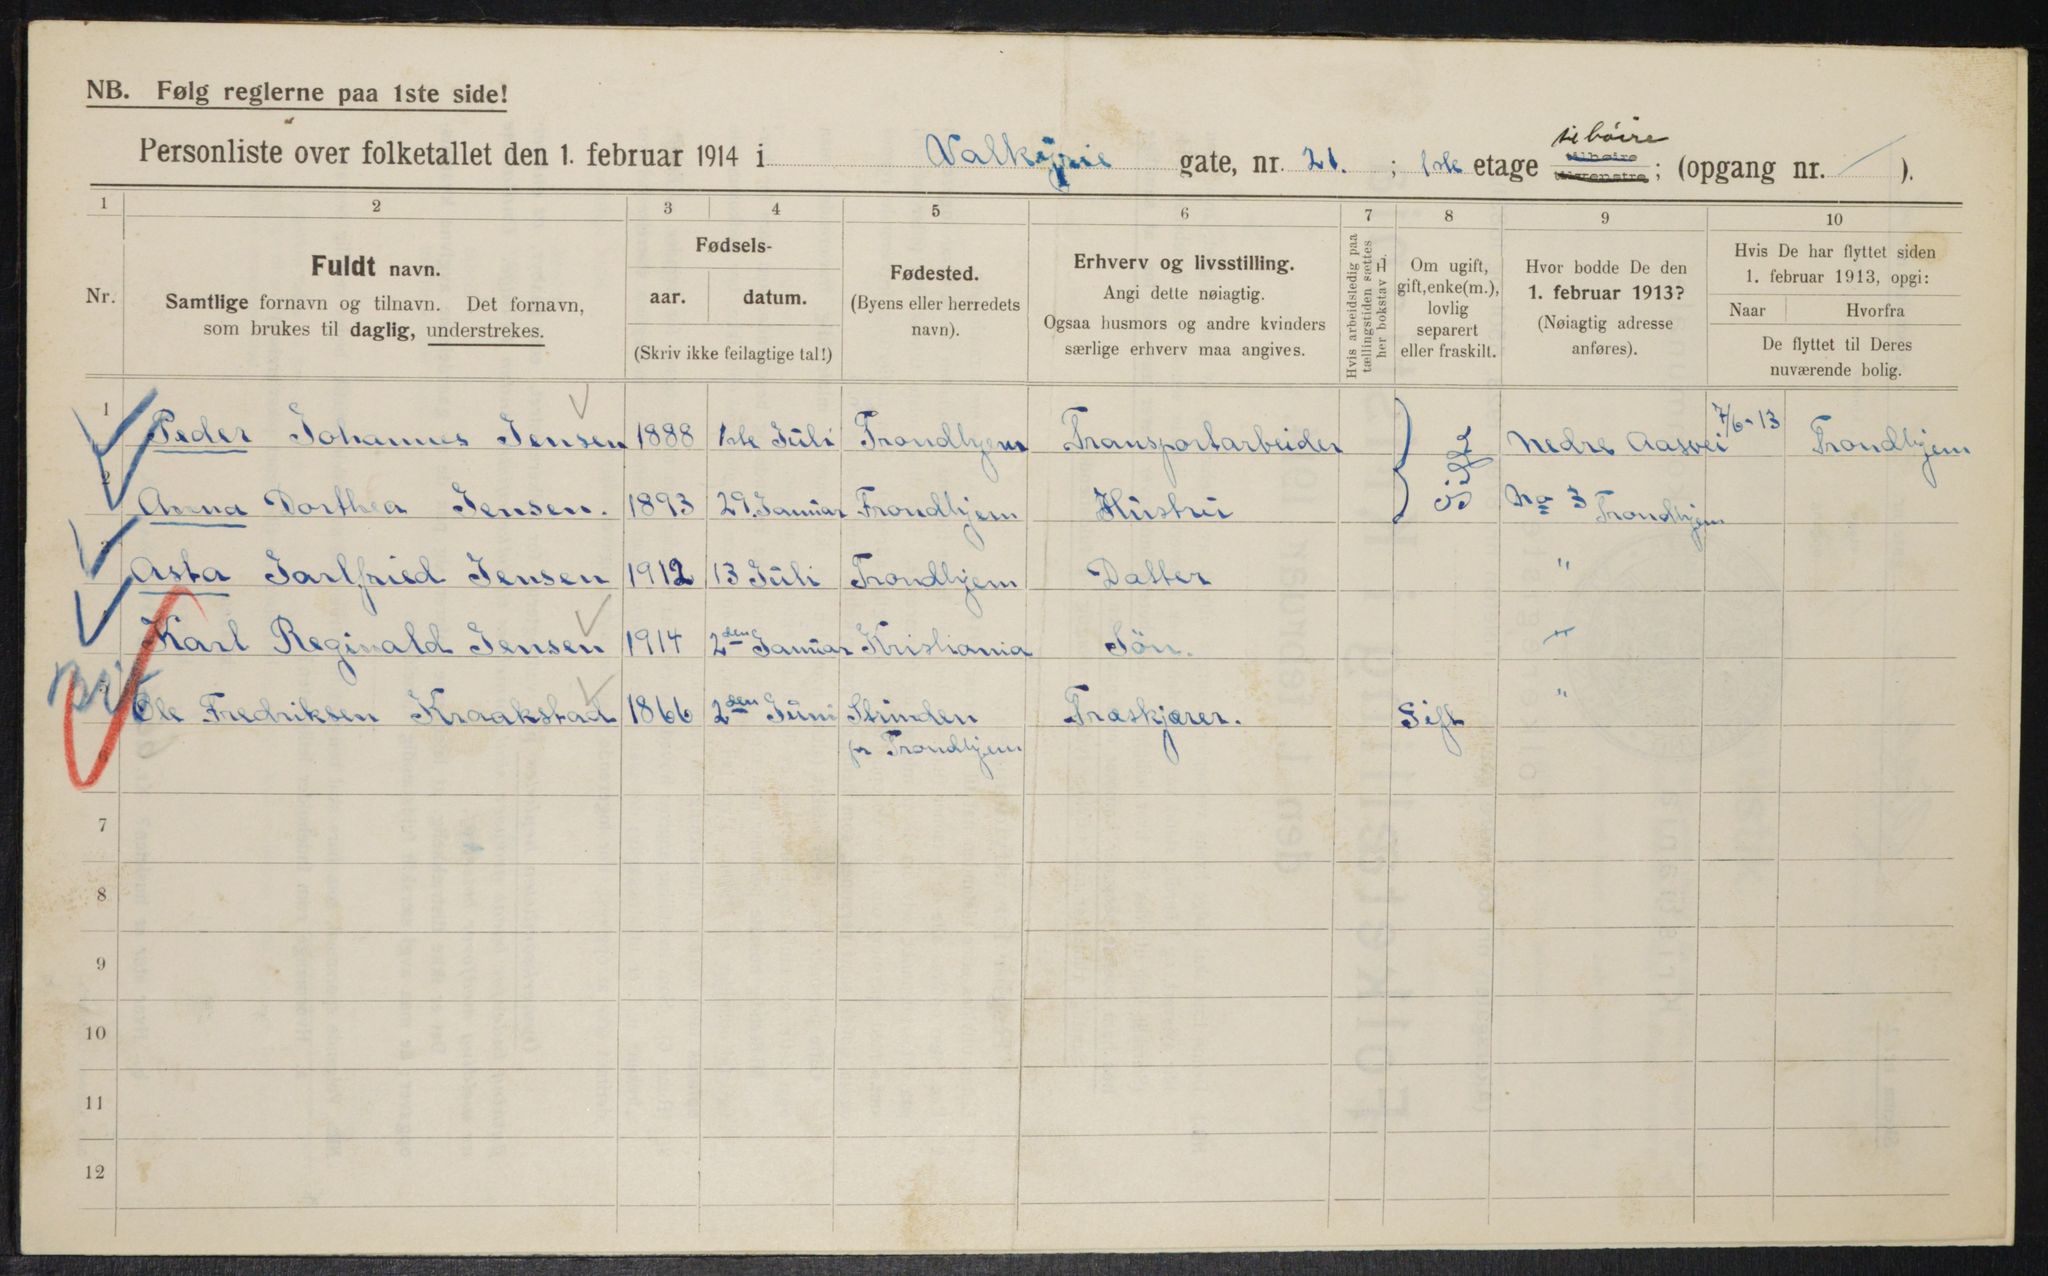 NB. Følg reglerne paa 1ste side!
til høire
Personliste over folketallet den 1. februar 1914 i Valkyrie gate, nr. 21. ; 1ste etage tilhøire tilvenstre ; (opgang nr. / ).
1 2 3 4 5 6 7 8 9 10
Nr.
Fuldt navn.
Samtlige fornavn og tilnavn. Det fornavn,
som brukes til daglig, understrekes.
Fødsels-
aar. datum.
(Skriv ikke feilagtige tal!)
Fødested.
(Byens eller herredets
navn).
Erhverv og livsstilling.
Angi dette nøiagtig.
Ogsaa husmors og andre kvinders
særlige erhverv maa angives.
Hvis arbeidsledig paa
tællingstiden sættes
her bokstav H.
Om ugift,
gift, enke(m.),
lovlig
separert
eller fraskilt.
Hvor bodde De den
1. februar 1913?
(Nøiagtig adresse
anføres).
Hvis De har flyttet siden
1. februar 1913, opgi:
Naar Hvorfra
De flyttet til Deres
nuværende bolig.
1 Peder Johannes Jensen 1888 1ste Juli Trondhjem Transportarbeider Gift Nedre Aasvei 7/6-13 Trondhjem
2 Anna Dorthea Jensen. 1893 29. Januar Trondhjem Hustru No 3 Trondhjem
3 Asta Jarlfried Jensen 1912 13 Juli Trondhjem Datter "
Karl Reginald Jensen 1914 2den Januar Kristiania Sön. "
Ole Fredriksen Kraakstad 1866 2den Juni Strinden Træskjærer. Gift "
6 pr Trondhjem
7
8
9
10
11
12